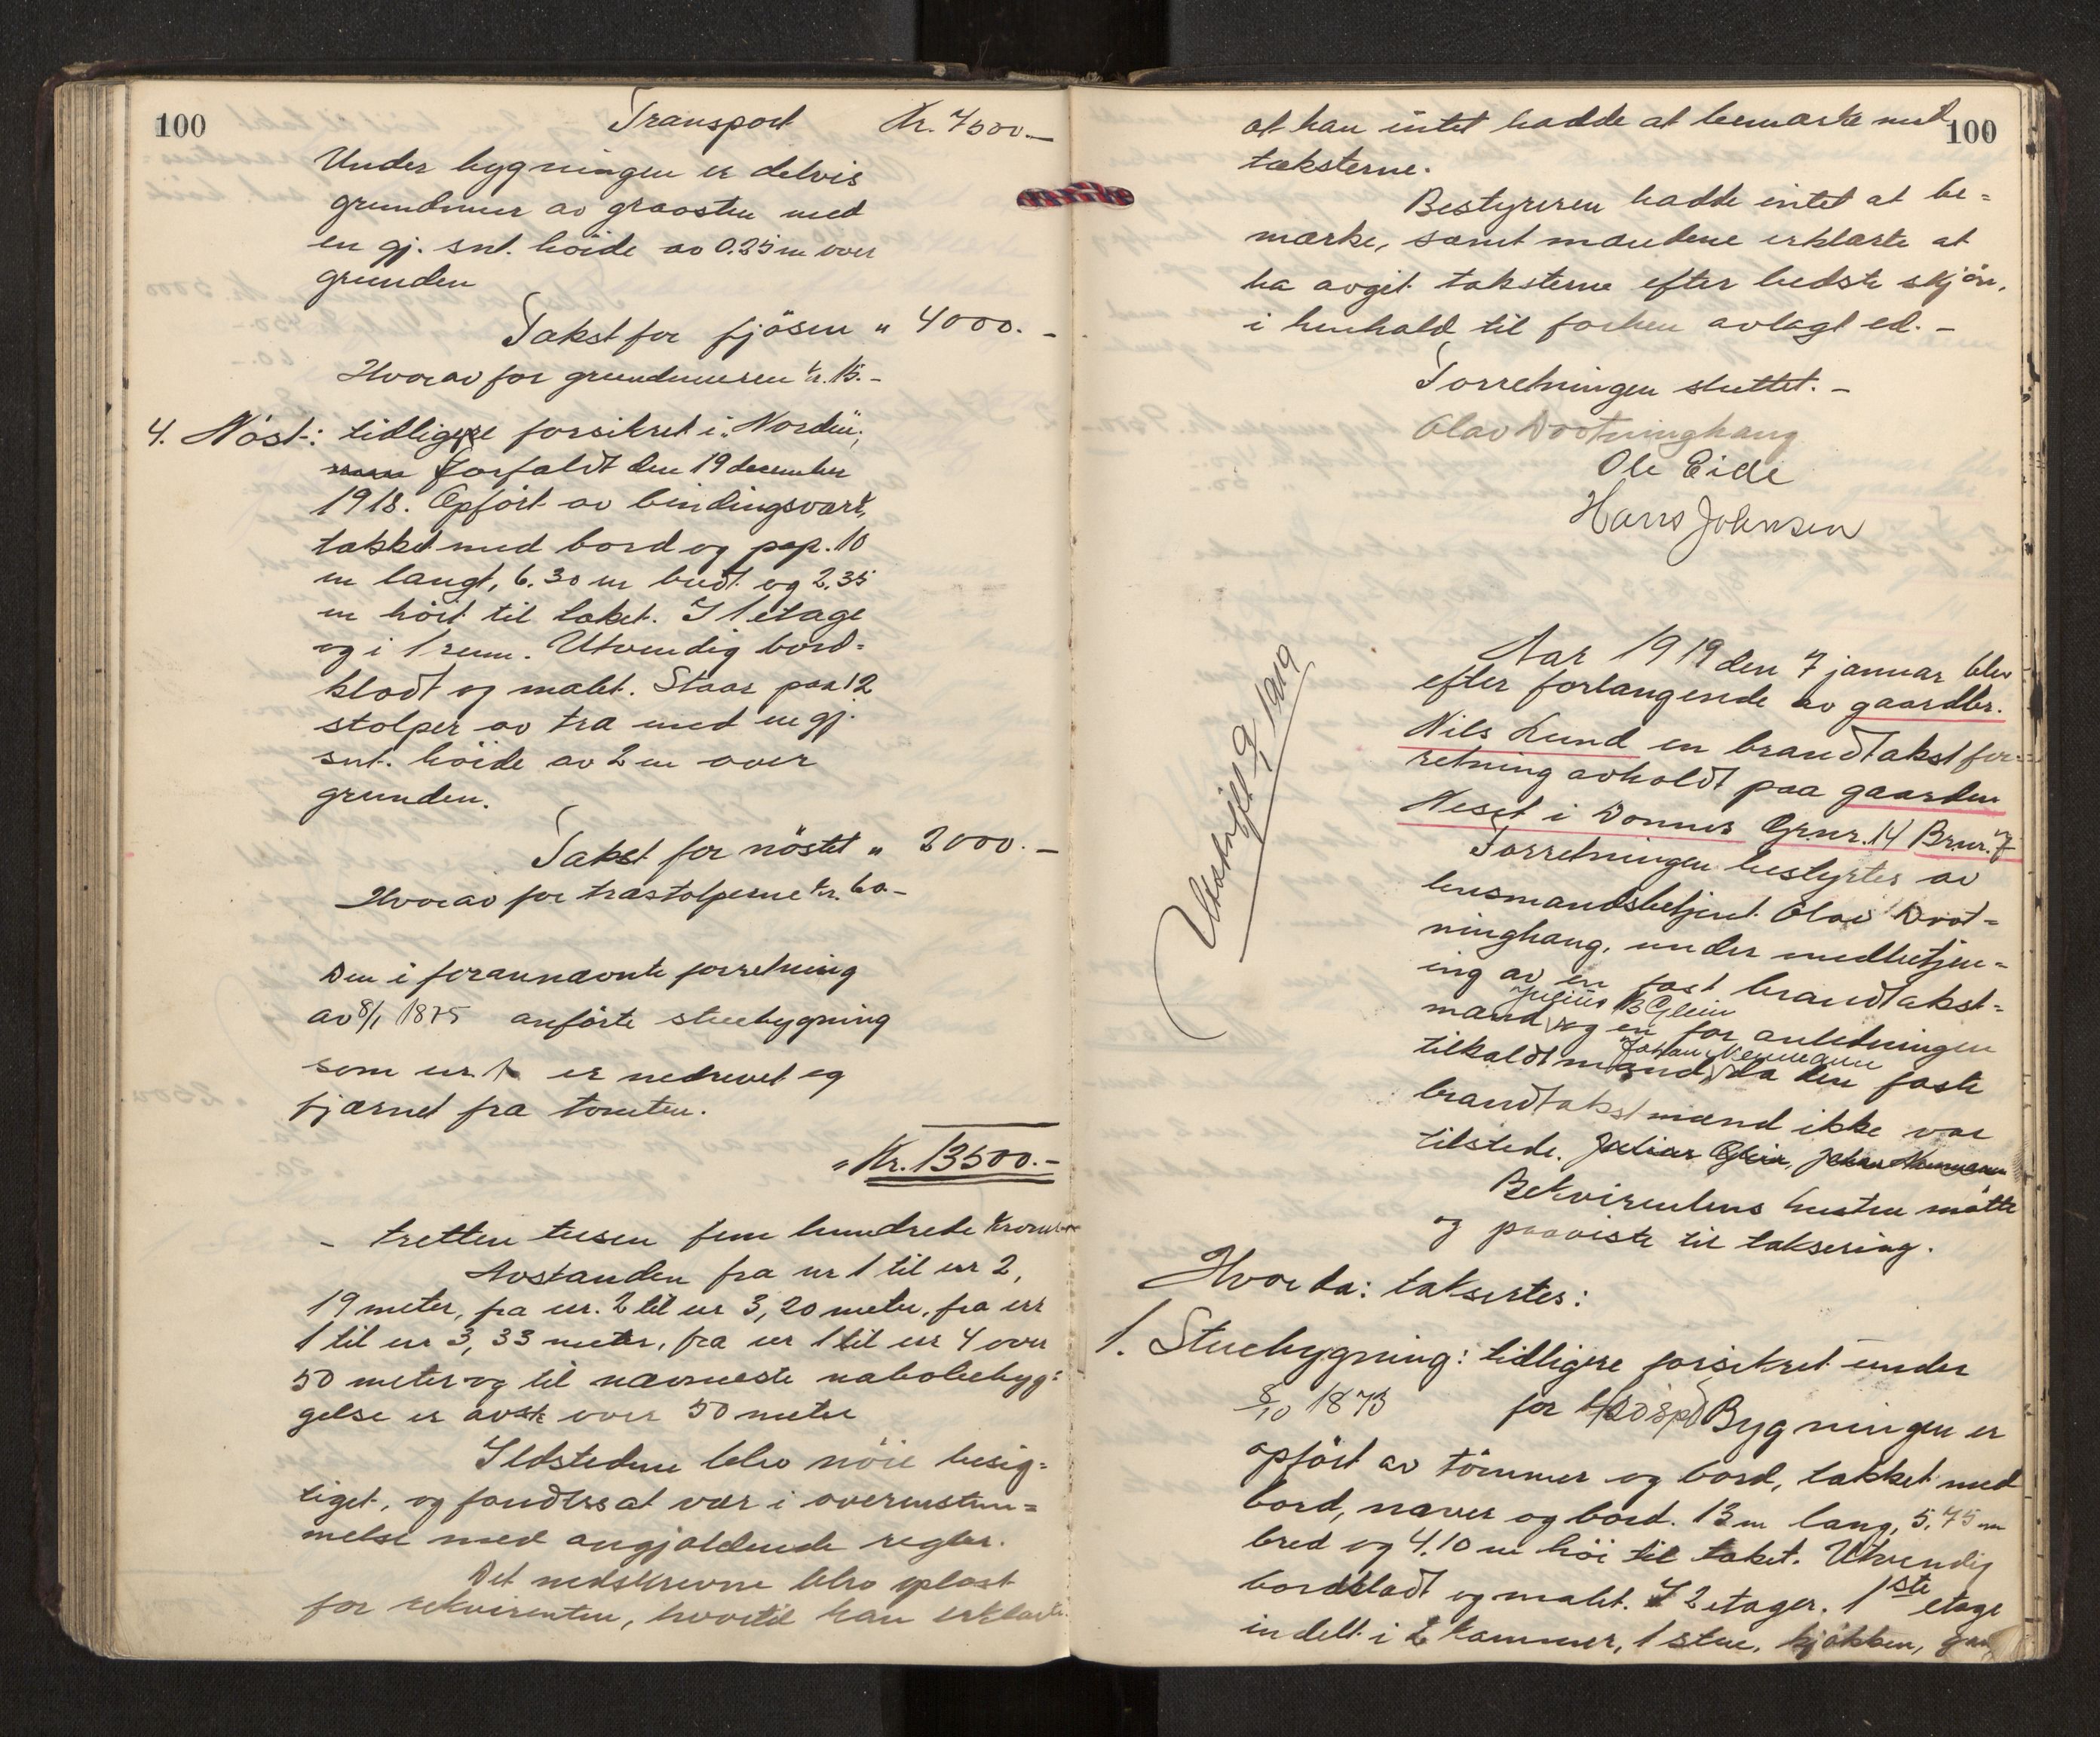 100
Transport Kr. 7500.—
Under bygningen er delvis
grundmur av graasten med
en gj. snt. höide av 0.25 m over
grunden
Takst for fjösen " 4000.—
Hvorav for grundmuren kr. 15.—
4. Nöst: tidligere forsikret i "Norden",
forfaldt den 19 december
1918. Opfört av bindingsverk,
tækket med bord og pap. 10
m langt, 6.30 m bredt og 2.35
m höit til taket. I 1 etage
og i 1 rum. Utvendig bord-
klædt og malet. Staar paa 12
stolper av træ med en gj.
snt. höide av 2 m over
grunden.
Takst for nöstet " 2000.—
Hvorav for træstolperne kr. 60—
Den i forannævnte forretning
av 8/1 1875 anförte stuebygning
som nr. 1 er nedrevet og
fjærnet fra tomten.
"Kr. 13500.—
- tretten tusen fem hundrede kroner
Avstanden fra nr 1 til nr 2,
19 meter, fra nr. 2 til nr 3, 20 meter, fra nr
1 til nr 3, 33 meter, fra nr 1 til nr 4 over
50 meter og til nævneste nabobebyg-
gelse er avst. over 50 meter
Ildstedene blev nöie besig-
tiget, og fandtes at vær i overenstem-
melse med angjældende regler.
Det nedskrevne blev oplæst
for rekvirenten, hvortil han erklærte
100
at han intet hadde at bemærke med
taksterne.
Bestyreren hadde intet at be-
mærke, samt mændene erklærte at
ha avgit taksterne efter bedste skjön,
i henhold til forhen avlagt ed.—
Forretningen sluttet.—
Olav Drotninghaug
Ole Eide
Hans Johnsen
Utskrift 9/1 1919
Aar 1919 den 7 januar blev
efter forlangende av gaardbr.
Nils Lund en brandtakstfor-
retning avholdt paa gaarden
Neset i Dønnes Grnr. 14 Brnr. 7
Forretningen bestyrtes av
lensmandsbetjent Olav Drot-
ninghaug, under medbetjen-
ing av en fast brandtakst-
Julius B Glein
mand og en for anledningen
Johan Neumann
tilkaldt mand, da den faste
brandtakstmand ikke var
tilstede. Julius Glein, Johan Neumann
Rekvirentens hustru mötte
og paaviste til taksering.
Hvorda: taksertes:
1. Stuebygning: tidligere forsikret under
8/10 1873 for 420 spd Bygningen er
opfört av tömmer og bord, tækket med
bord, næver og bord. 13 m lang, 5.75 m
bred og 4.10 m höi til taket. Utvendig
bordklædt og malet. I 2 etager. 1ste etage
indelt i 2 kammer, 1 stue, kjökken, gang